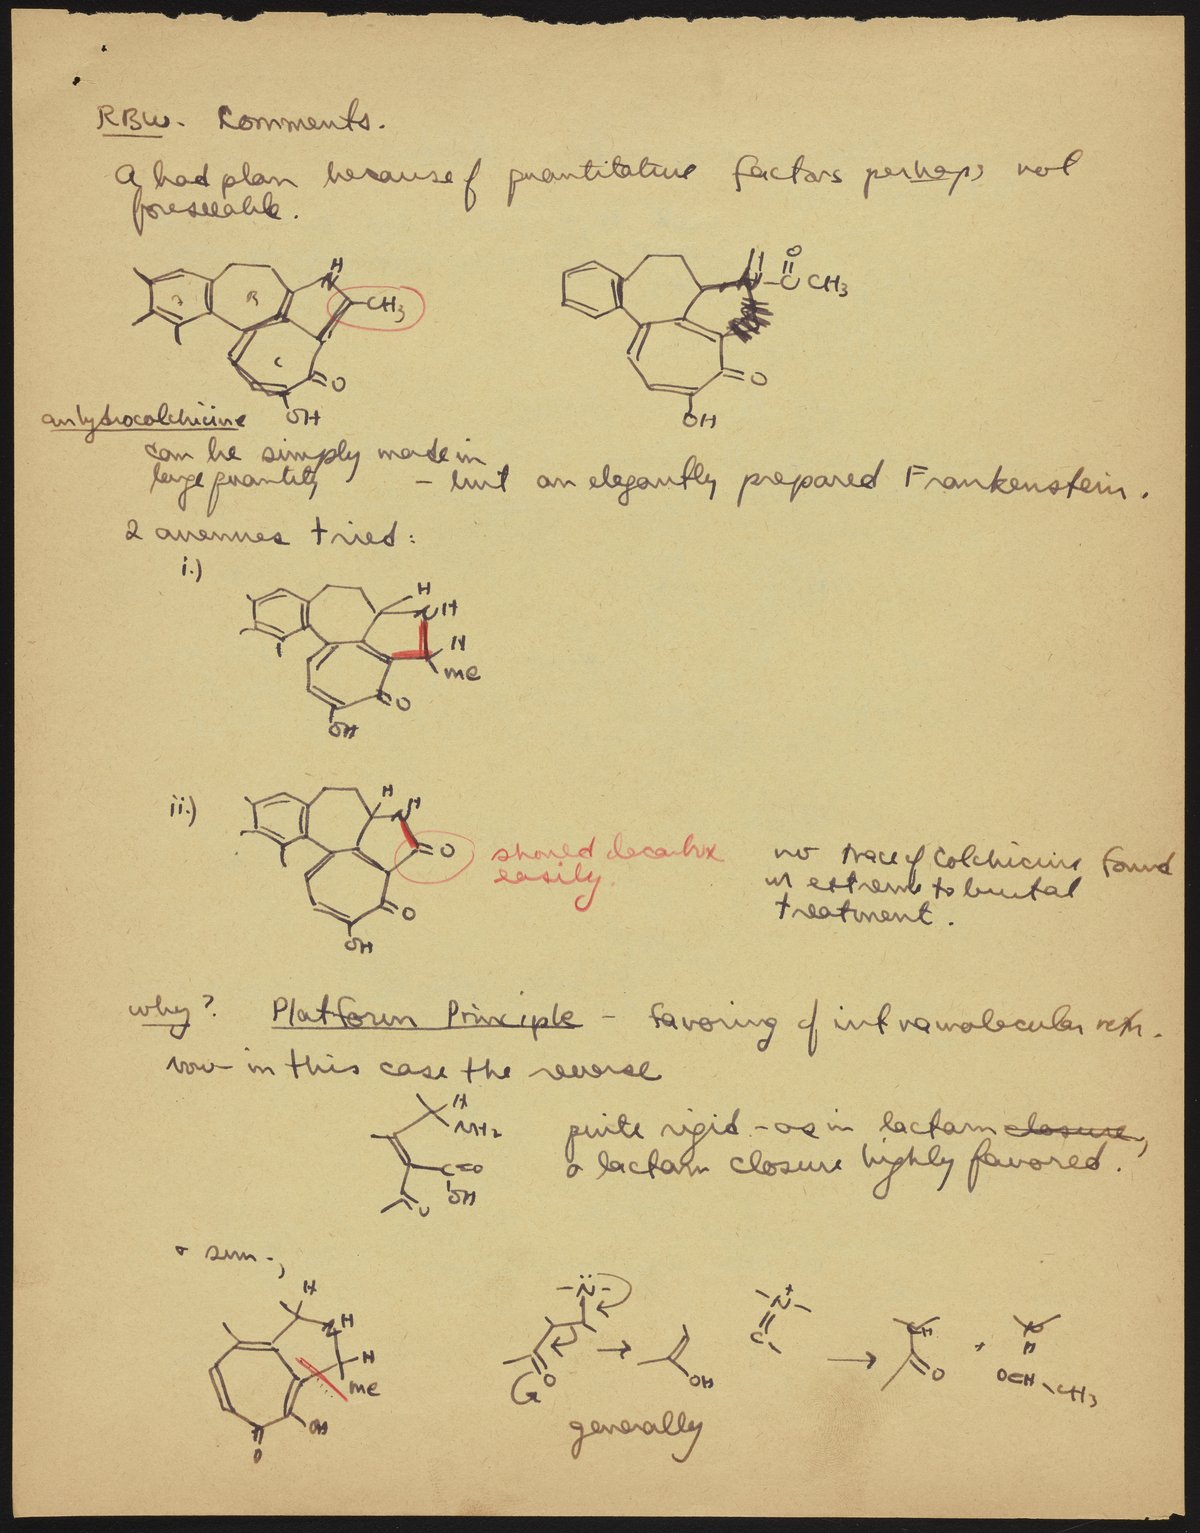 RBW. Comments.
A bad plan because of quantitative factors perhaps not
foreseeable.
H
N
CH3
B
C
O
OH
N-C CH3
O
O
OH
anhydrocolchicine
can be simply made in
large quantity - but an elegantly prepared Frankenstein.
2 avenues tried:
i.)
H
NH
H
Me
O
OH
ii.)
H
N H
O
O
OH
should decarbox
easily.
no trace of Colchicine found
in extreme to brutal
treatment.
why? Platform Principle - favoring of intramolecular rctn.
now in this case the reverse
H
NH2
C=O
OH
O
quite rigid - as in lactam closure,
a lactam closure highly favored.
sim.,
H
N H
H
Me
OH
O
-N̈-
O
G
→
OH
N+
C
→
CH
O
+
N
H
OCH
CH3
generally